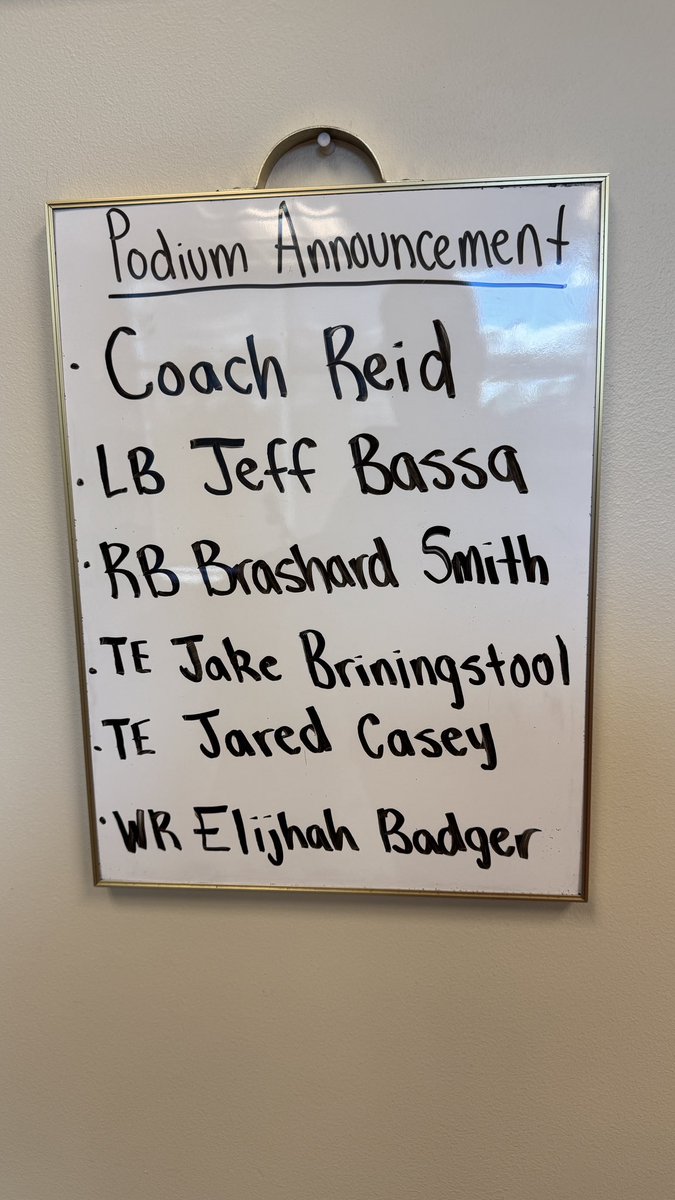 Podium Announcement
• Coach Reid
• LB Jeff Bassa
• RB Brashard Smith
• TE Jake Briningstool
• TE Jared Casey
• WR Elijhah Badger